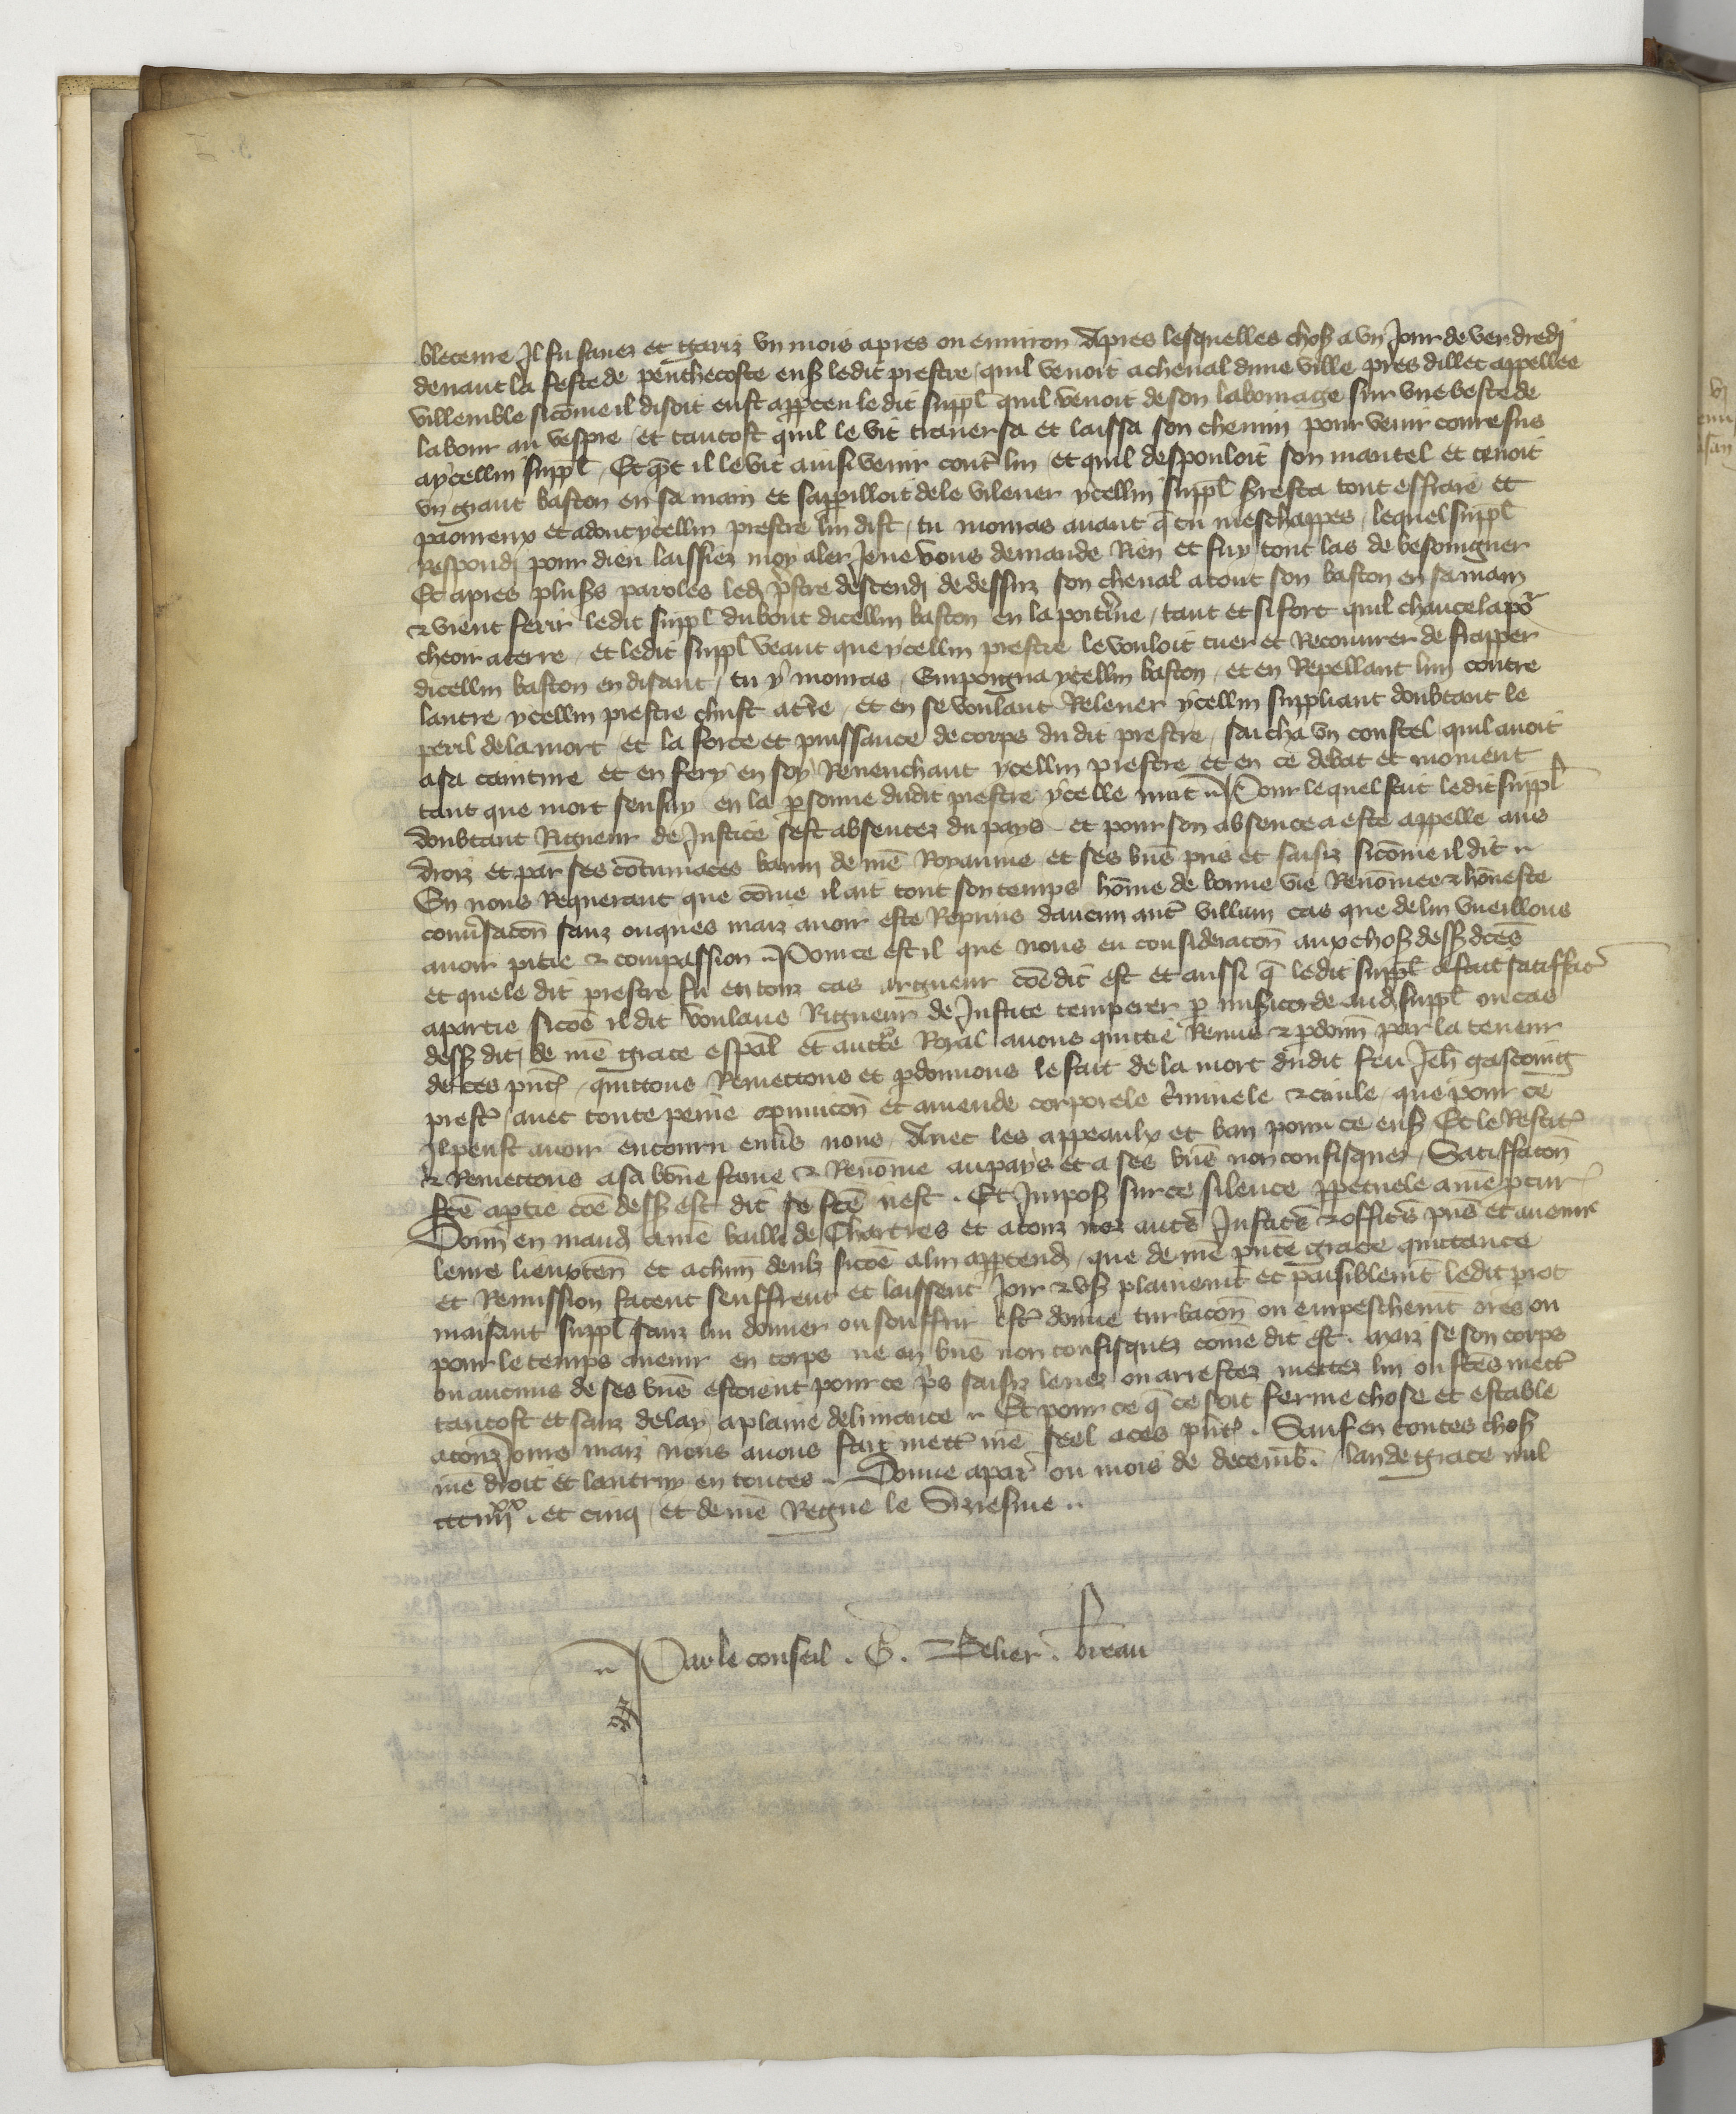 bleceure Il fu sanez et gariz vn mois apres ou enuiron Apres lesquelles choses a vn Jour de vendredi
deuant la feste de penthecoste eust ledit prestre quil venoit a cheual dune ville pres dillec appellee
villemble sicōme il disoit eust appceu ledit suppl̄ quil venoit de son labourage sur vne beste de
labour au vespre et tantost quil le vit trauersa et laissa son chemin pour venir courre sus
aycellui suppl̄ Et qn̄t il le vit ainsi venir cont̃ lui et quil despouloit son mantel et tenoit
vn grant baston en sa main et sappilloit de le vilener ycellui suppl̄ sresta tout effraie et
paoureux et adonc ycellui prestre lui dist tu mourras auant q̄ tu meschappes lequel suppl̄
respondi pour dieu laissiez moy aler Je ne vous demande Rien et suy tout las de besoingner
Et apres plus's paroles led' p̃stre descendi de dessuz son cheual atout son baston en sa main
& vient ferir ledit suppl du bout dicellui baston en la poitrine tant et si fort quil chancela po'
cheoir a terre et ledit suppl veant que ycellui prestre le vouloit tuer et Recouurer de frapper
dicellui baston en disant tu y mourras Empongna ycellui baston et en Repellant lun contre
lautre ycellui prestre chust a t̃re et en se voulant Releuer ycellui suppliant doubtant le
peril de la mort et la force et puissance de corps du dit prestre saicha vn coustel quil auoit
a sa cainture et en fery en soy Reuenchant ycellui prestre et en ce debat et moment
tant que mort sensuy en la p̱sonne dudit prestre ycelle nuit Pour lequel fait ledit suppl̄
doubtant Rigueur de Justice sest absentez du pays et pour son absence a este appelle a nos
droiz et par ses cōtumaces banni de nr̄e Royaume et ses biēs pris et saisiz sicōme il dit
En nous Requerant que cōme il ait tout son temps hōme de bonne vie Renōmee & hōneste
conu̾sacōn sanz onques mais auoir este Repris daucun aut̃ villain cas que de lui vueillons
auoir pitie & compassion Pour ce est il que nous en consideracōn aux choses dess' dc̄es
et que le dit prestre fu en touz cas argueur cōe dit est et aussi q̄ ledit suppl̄ a fait satiffac̃
a partie sicōe il dit voulans Rigueur de Justice temperer p̱ misicorde aud' suppl̄ ou cas
dess' dit de nr̄e grace esp̄al et auct̃e Royal auons quittie Remis & p̱donn̄ par la teneur
de ces pn̄t̃ quittons Remettons et p̱donnons le fait de la mort dudit feu Jeh̄ gascoing
prest̃ auec toute peine opinicōn et amende corporele c̃iminele & ciuile que pour ce
Il peust auoir encouru enu̾s nous Auec les appeaulx et ban pour ce ens' Et le Restit̃
& Remettons a sa bōne fame & Renōmee au pays et a ses biēs non confisquez Satiffacōn
fc̄e a p̱tie cōe dess' est dit se fc̄e nest Et Imposons sur ce silence p̱petuele a nr̄e p̱cur'
Donn̄ en mand' a nr̄e bailli de Chartres et a touz noz aut̃s Justic̃ & offic̃s pn̄s et auenir
leurs lieuxten̄ et a chun̄ deulx sicōe a lui app̱tend' que de nr̄e pn̄te grace quittance
et Remission facent seuffrent et laissent Joir & vs' plainemt̄ et paisiblemt̄ ledit piot
maisant suppl̄ sanz lui donner ou souffrir est̃ donne turbacōn ou empeschemt̄ ores ou
pour le temps auenir en corps ne en biēs non confisquez come dit est maiz se son corps
ou aucuns de ses biēs estoient pour ce p̃s saisiz leuez ou arrestez mettez lui ou fc̄es mett̃
tantost et sanz delay a plaine deliurance Et pour ce q̄ ce soit ferme chose et estable
a touziours maiz nous auons fait mett̃ nr̄e scel a ces pn̄t̃ Sauf en toutes choses
nr̄e droit et lautruy en toutes Donne a par' ou mois de decemb̄ lan de grace mil
ccciiiixx et cinq et de nr̄e Regne le Siziesme

Par le conseil . G. Belier . breau